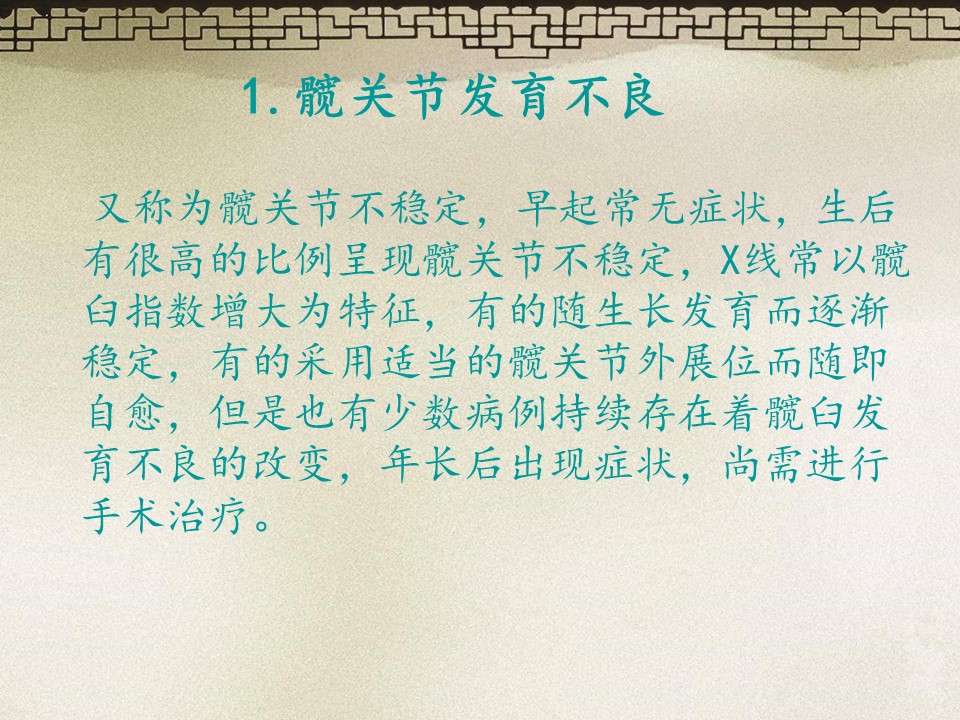 1.髋关节发育不良
又称为髋关节不稳定，早起常无症状，生后
有很高的比例呈现髋关节不稳定，X线常以髋
臼指数增大为特征，有的随生长发育而逐渐
稳定，有的采用适当的髋关节外展位而随即
自愈，但是也有少数病例持续存在着髋臼发
育不良的改变，年长后出现症状，尚需进行
手术治疗。